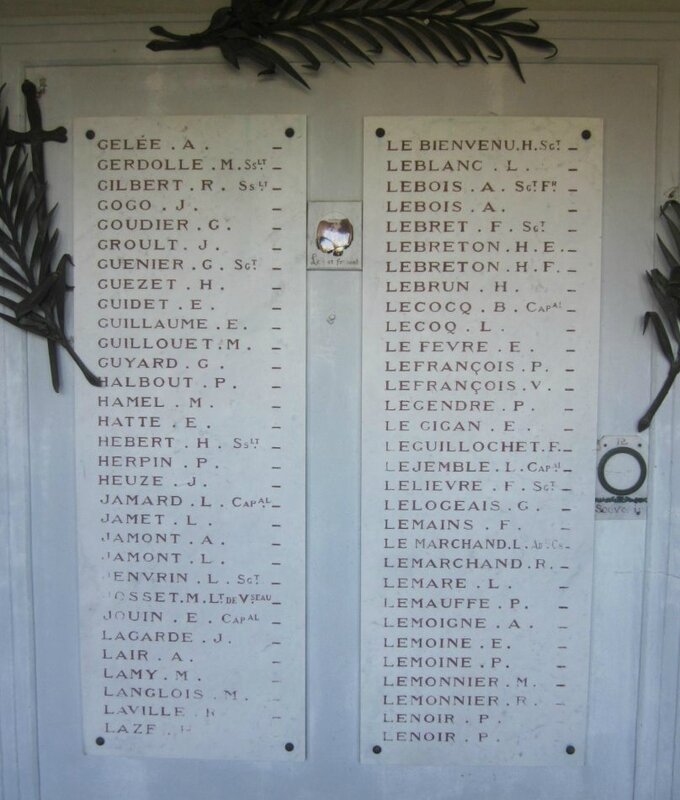 GELÉE . A . –
GERDOLLE . M. SsLT –
GILBERT . R . SsLT –
GOGO . J . –
GOUDIER . G . –
GROULT . J . –
GUENIER . G . SGT –
GUEZET . H . –
GUIDET . E . –
GUILLAUME . E . –
GUILLOUET . M . –
GUYARD . G . –
HALBOUT . P . –
HAMEL . M . –
HATTE . E . –
HEBERT . H . SsLT –
HERPIN . P . –
HEUZE . J . –
JAMARD . L . CAPAL –
JAMET . L . –
JAMONT . A . –
JAMONT . L . –
JENVRIN . L . SGT –
JOSSET . M. LT DE VSEAU –
JOUIN . E . CAPAL –
LAGARDE . J . –
LAIR . A . –
LAMY . M . –
LANGLOIS . M . –
LAVILLE –
LAZE –
LE BIENVENU. H. SGT –
LEBLANC . L . –
LEBOIS . A . SGT FR –
LEBOIS . A . –
LEBRET . F . SGT –
LEBRETON . H . E . –
LEBRETON . H . F . –
LEBRUN . H . –
LECOCQ . B . CAPAL –
LECOQ . L . –
LE FEVRE . E . –
LEFRANÇOIS . P . –
LEFRANÇOIS . V . –
LEGENDRE . P . –
LE GIGAN . E . –
LEGUILLOCHET. F. –
LEJEMBLE . L . CAPAL –
LELIEVRE . F . SGT –
LELOGEAIS . G . –
LEMAINS . F . –
LE MARCHAND. L. –
LEMARCHAND . R . –
LEMARE . L . –
LEMAUFFE . P . –
LEMOIGNE . A . –
LEMOINE . E . –
LEMOINE . P . –
LEMONNIER . M . –
LEMONNIER . R . –
LENOIR . P . –
LENOIR . P . –